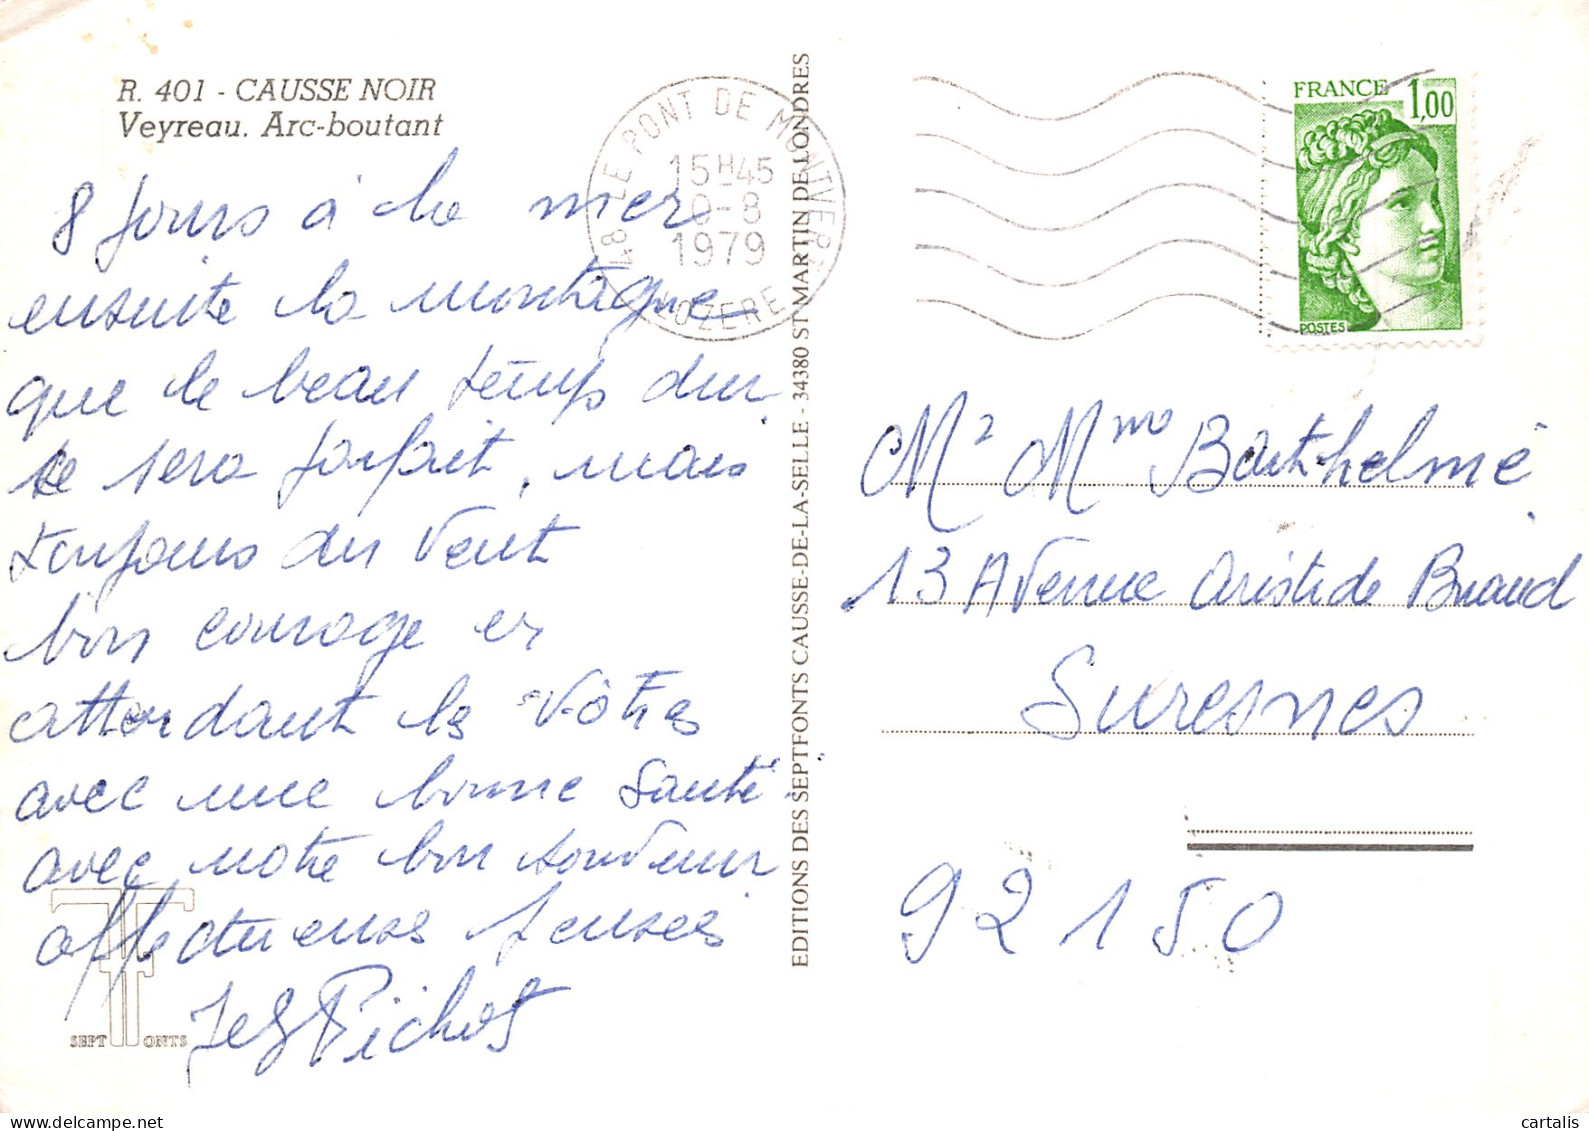 R. 401 - CAUSSE NOIR
Veyreau. Arc-boutant
8 jours à la mer
ensuite la montagne
que le beau temps dur
se sera parfait, mais
toujours du vent
bon courage en
attendant les vôtres
avec une bonne santé
avec notre bon souvenir
affectueuses pensées
Pichot
SEPT FONTS
EDITIONS DES SEPTFONTS CAUSSE-DE-LA-SELLE - 34380 ST MARTIN DE LONDRES
48 LE PONT DE MONTVERT
15H45
-8
1979
LOZERE
FRANCE 1,00
POSTES
Mr Mme Barthelmé
13 Avenue Aristide Briand
Suresnes
92150
cartalis